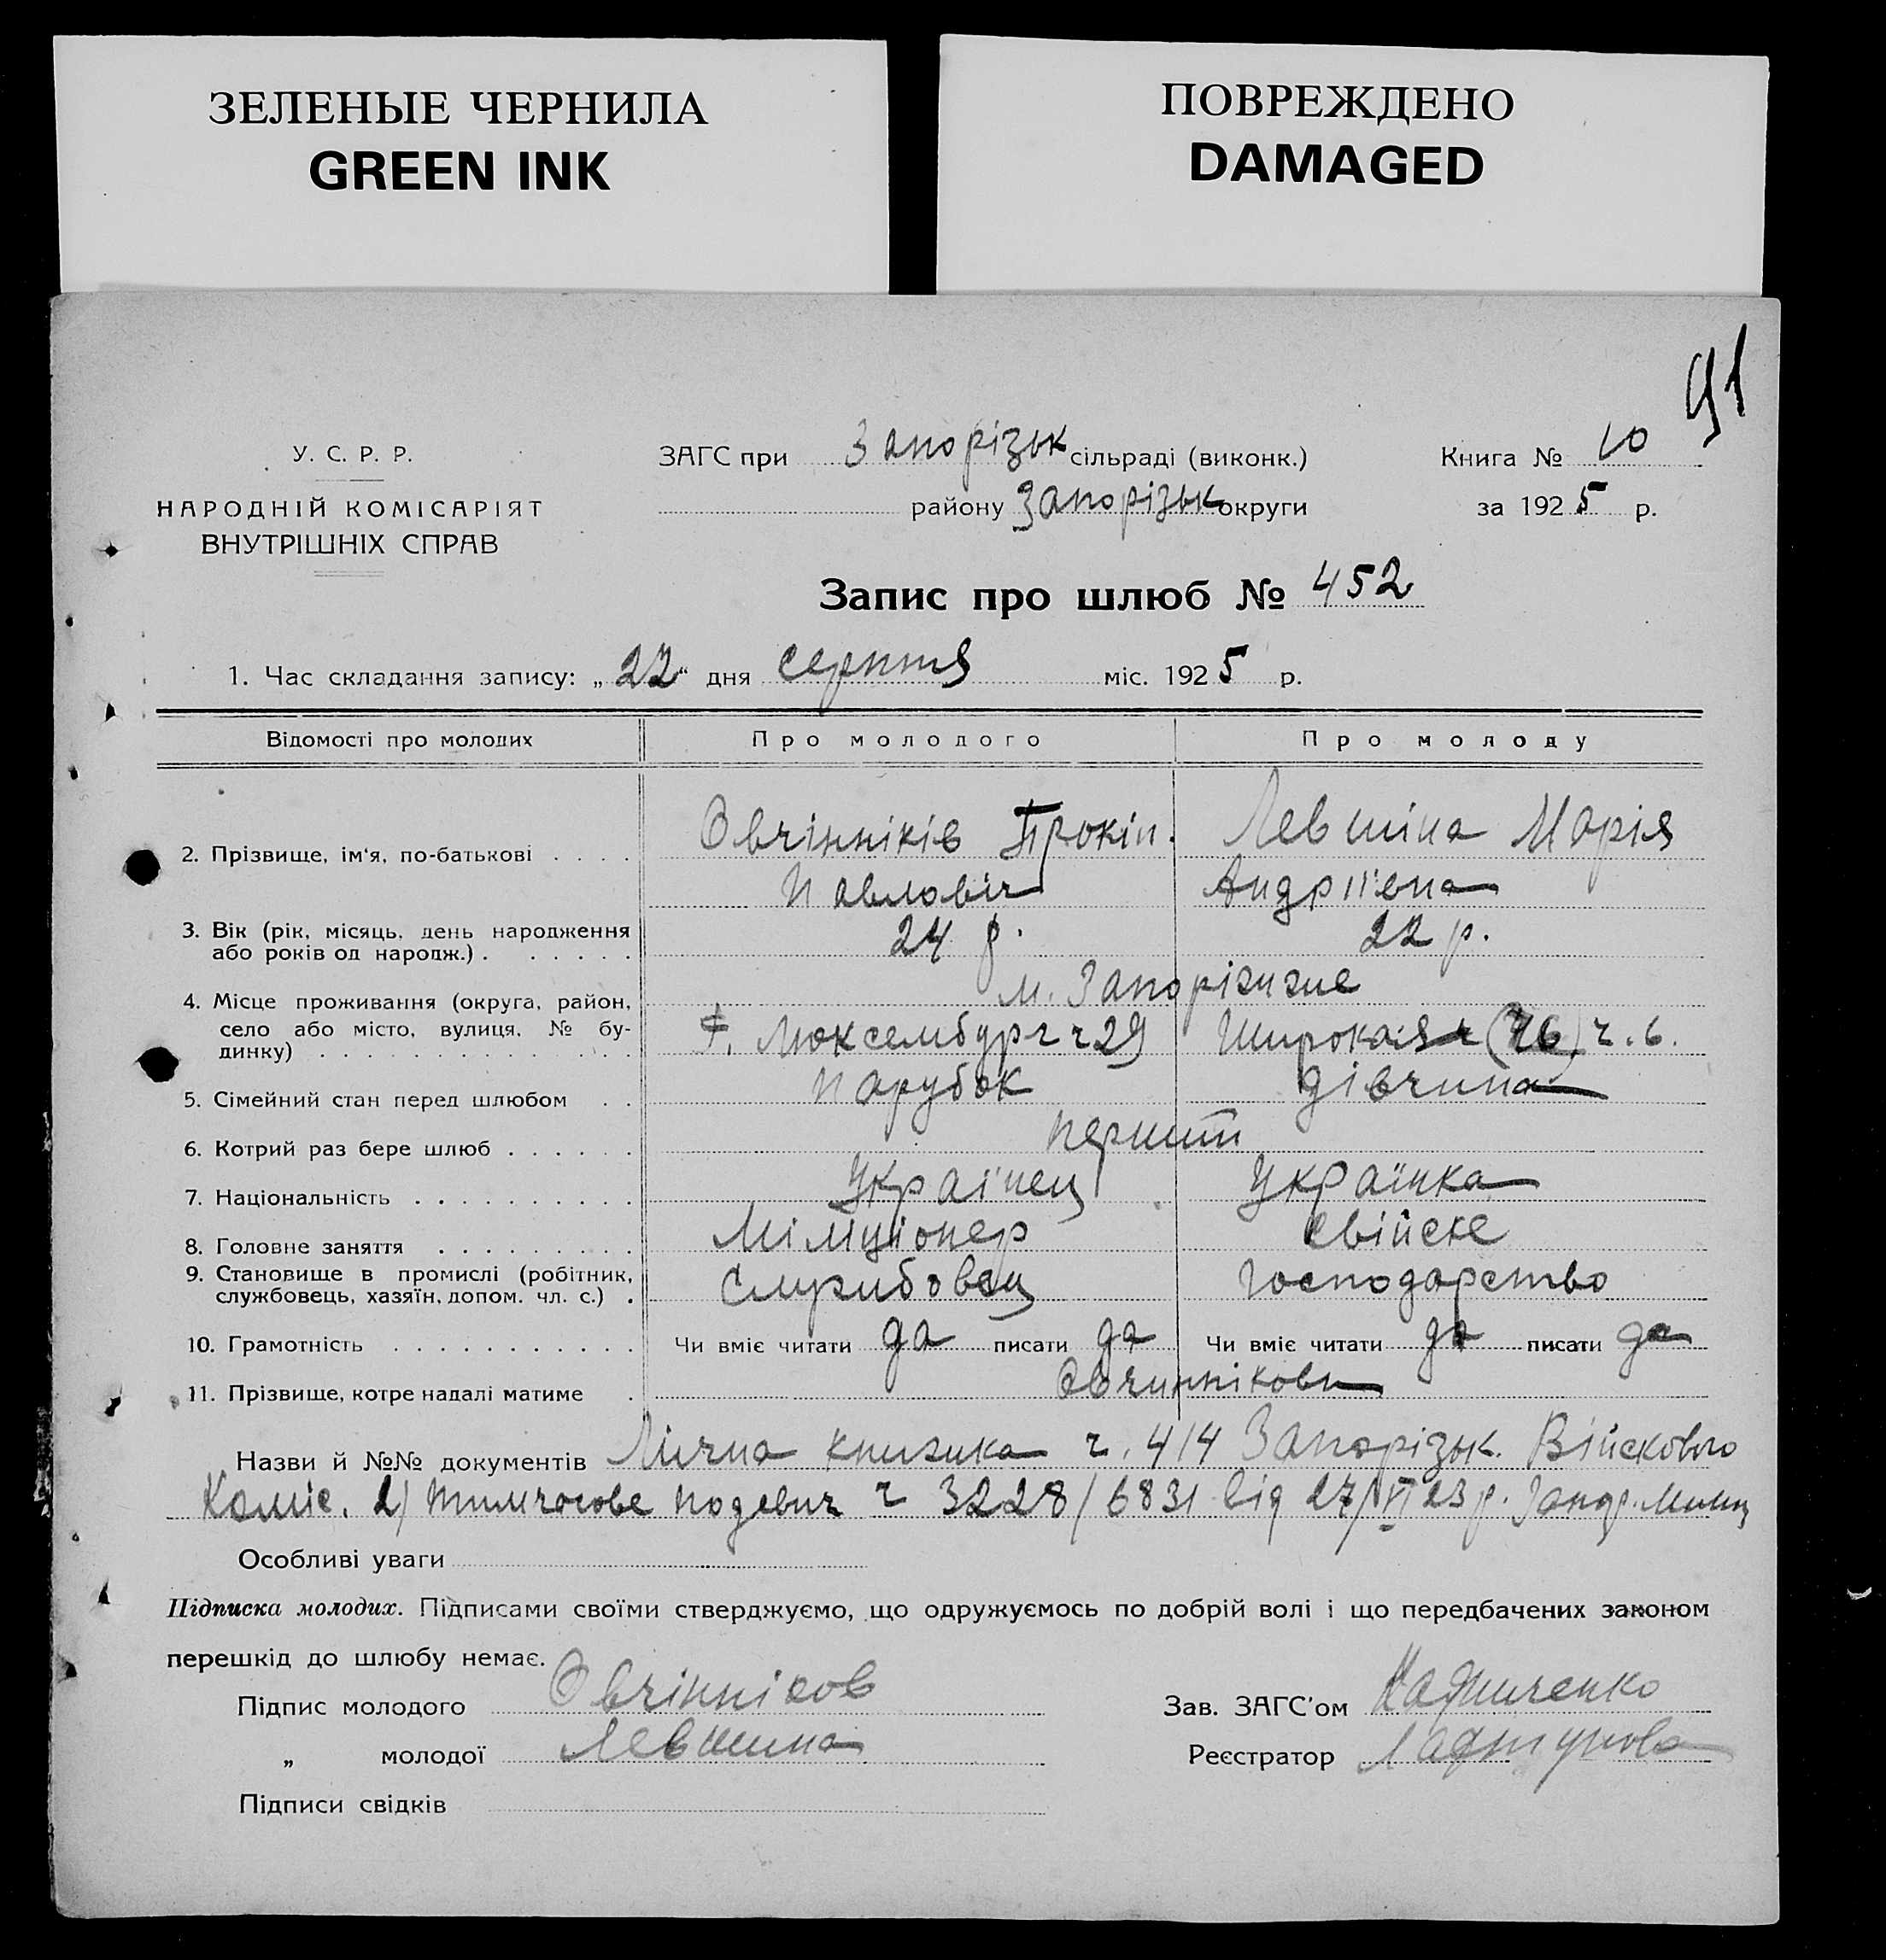 ЗЕЛЕНЫЕ ЧЕРНИЛА
GREEN INK
ПОВРЕЖДЕНО
DAMAGED
91
У. С. Р. Р.
НАРОДНІЙ КОМІСАРІЯТ
ВНУТРІШНІХ СПРАВ
ЗАГС при Запорізьк сільраді (виконк.)
району Запорізьк округи
Книга № 10
за 1925 р.
Запис про шлюб № 452
1. Час складання запису: „22“ дня серпня міс. 1925 р.
Відомості про молодих Про молодого Про молоду
2. Прізвище, ім'я, по-батькові . . . . Овчінніків Прокіп. Левшіна Марія
Павловіч Андріївна
3. Вік (рік, місяць, день народження
або років од народж.) . . . . . . 24 р. 22 р.
4. Місце проживання (округа, район, м. Запоріжже
село або місто, вулиця, № бу-
динку) Люксембург ч 29 Широкая ч. 6.
5. Сімейний стан перед шлюбом . . Парубок дівчина
6. Котрий раз бере шлюб . . . . . . перший
7. Національність . . . . . . . . . . Українец Українка
8. Головне заняття . . . . . . . . . Міліціонер свійске
9. Становище в промислі (робітник,
службовець, хазяїн, допом. чл. с.) . Службовец господарство
10. Грамотність . . . . . . . . . . . Чи вміє читати да писати да Чи вміє читати да писати да
11. Прізвище, котре надалі матиме . Овчиннікови
Назви й №№ документів Лична книжка ч. 414 Запорізьк. Військового
Коміс. 2) тимчасове ч 3228/6831 від 27/VI 23 р.
Особливі уваги
Підписка молодих. Підписами своїми стверджуємо, що одружуємось по добрій волі і що передбачених законом
перешкід до шлюбу немає.
Підпис молодого Овчінніков
„ молодої Левшина
Підписи свідків
Зав. ЗАГС'ом
Реєстратор